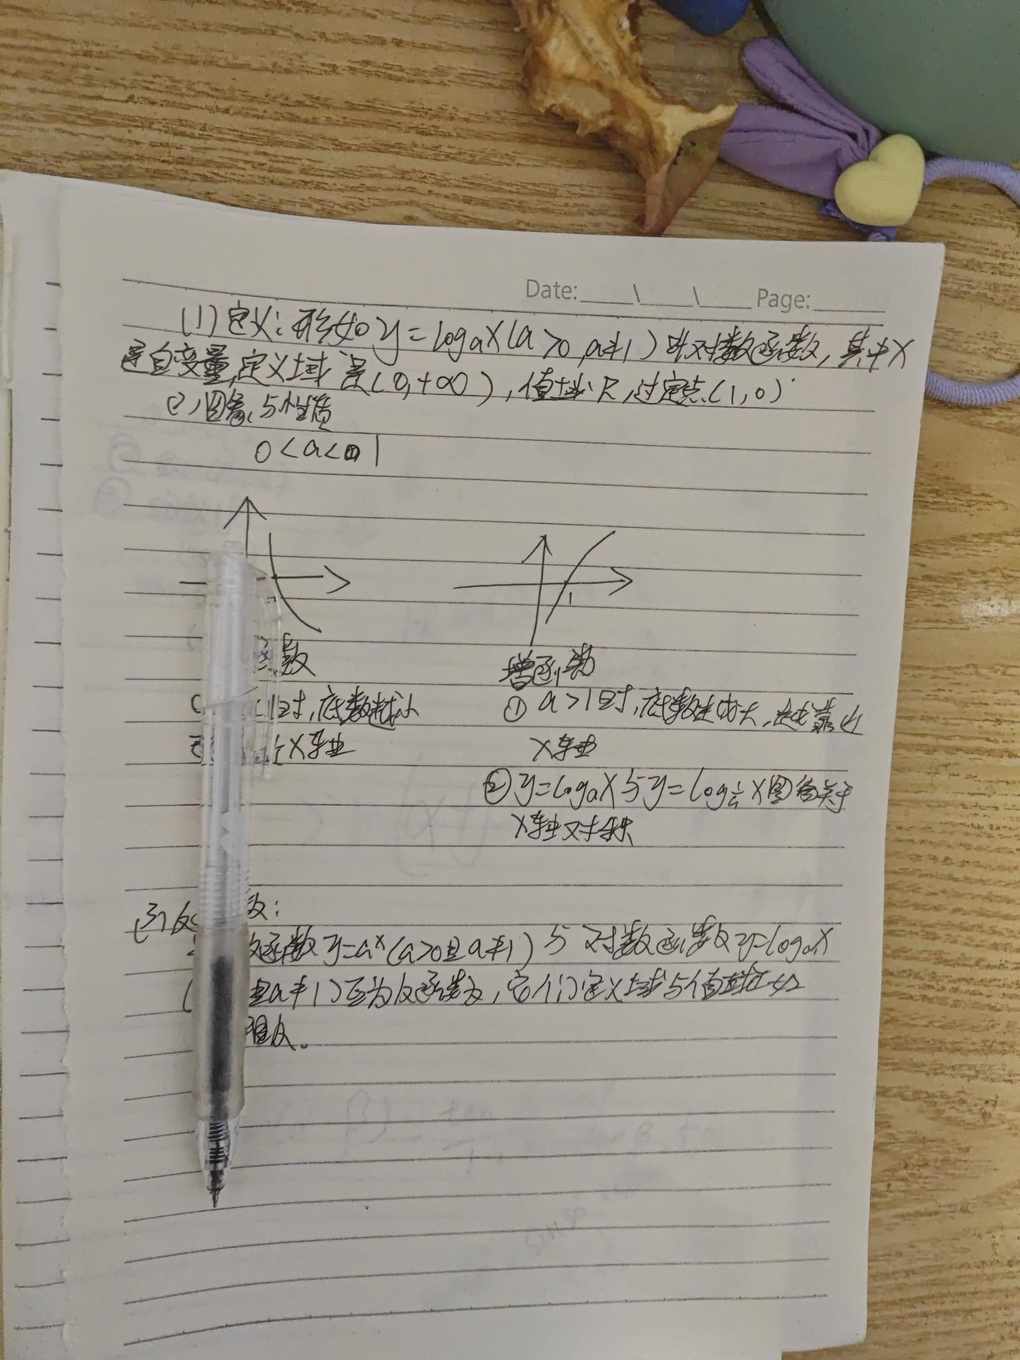 Date: \ \ Page:
(1)定义:形如y=logₐx(a>0,a≠1)叫对数函数,其中x
是自变量,定义域是(0,+∞),值域R,过定点(1,0)
(2)图象与性质
0<a<1
1
函数 增函数
时,底数越小 ① a>1时,底数越大,越靠近
近x轴 x轴
②y=logₐx与y=log_{1/a}x图象关于
x轴对称
(3)反 数:
函数y=aˣ(a>0且a≠1)与对数函数y=logₐx
( 且a≠1)互为反函数,它们定义域与值域正好
相反。